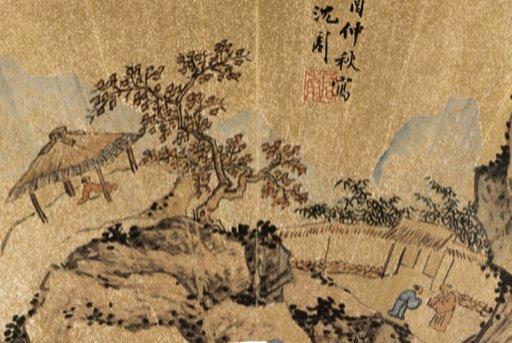 酉仲秋寫
沈周